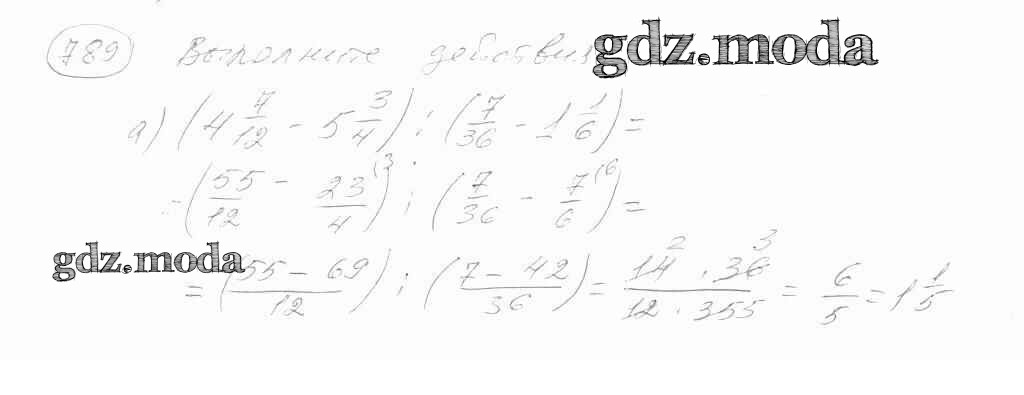 789 Выполните действия gdz.moda
а) (4 7/12 - 5 3/4) : (7/36 - 1 1/6) =
= (55/12 - 23/4 (3) : (7/36 - 7/6 (6) =
gdz.moda
= (55 - 69/12) : (7 - 42/36) = 14 2 · 36 3/12 · 355 = 6/5 = 1 1/5